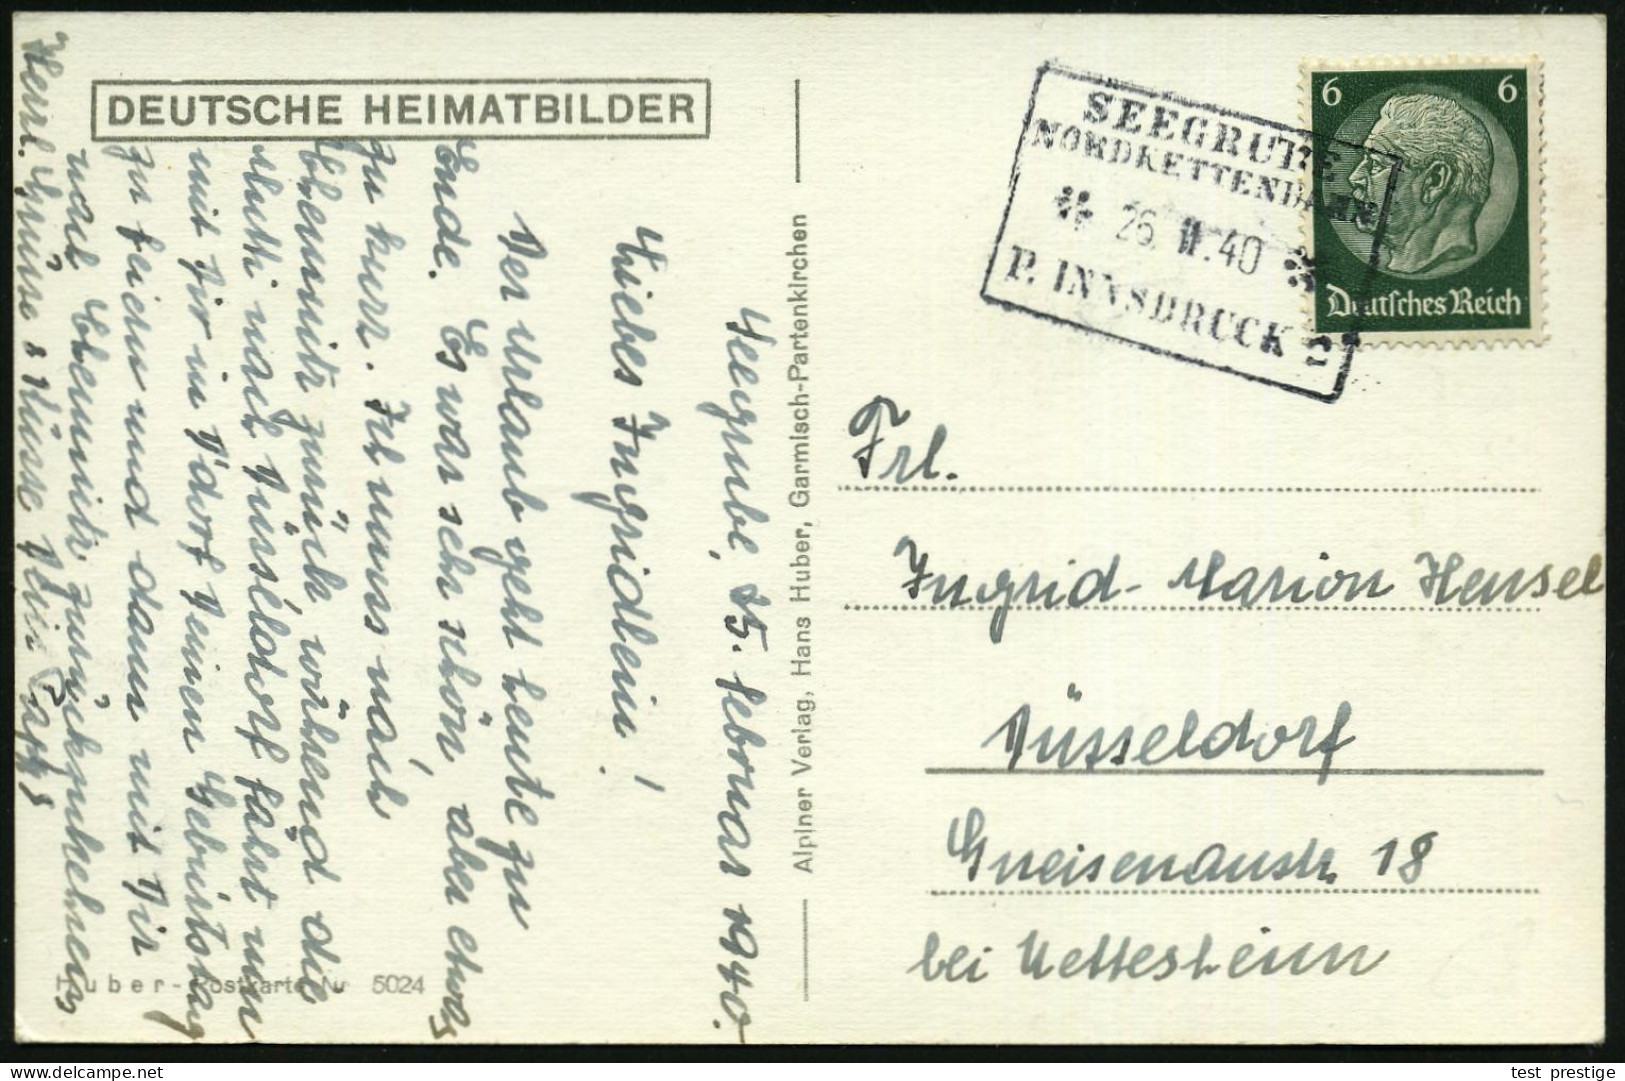 DEUTSCHE HEIMATBILDER
Seegrube, 25. Februar 1940.
Liebes Ingridlein!
Der Urlaub geht heute zu
Ende. Es war sehr schön, aber etwas
zu kurz. Ich muss nach
Chemnitz zurück, während die
Mutti nach Düsseldorf fährt um
mit Dir in D'dorf Deinen Geburtstag
zu feiern und dann mit Dir
nach Chemnitz zurückzukehren
Herzl. Grüsse & Küsse Dein Pappi
Huber-Postkarte Nr 5024
Alpiner Verlag, Hans Huber, Garmisch-Partenkirchen
SEEGRUBE
NORDKETTENBAHN
26. II. 40
P. INNSBRUCK 2
6 6
Deutsches Reich
Frl.
Ingrid-Marion Hensel
Düsseldorf
Gneisenaustr. 18
bei Nettesheim
test prestige